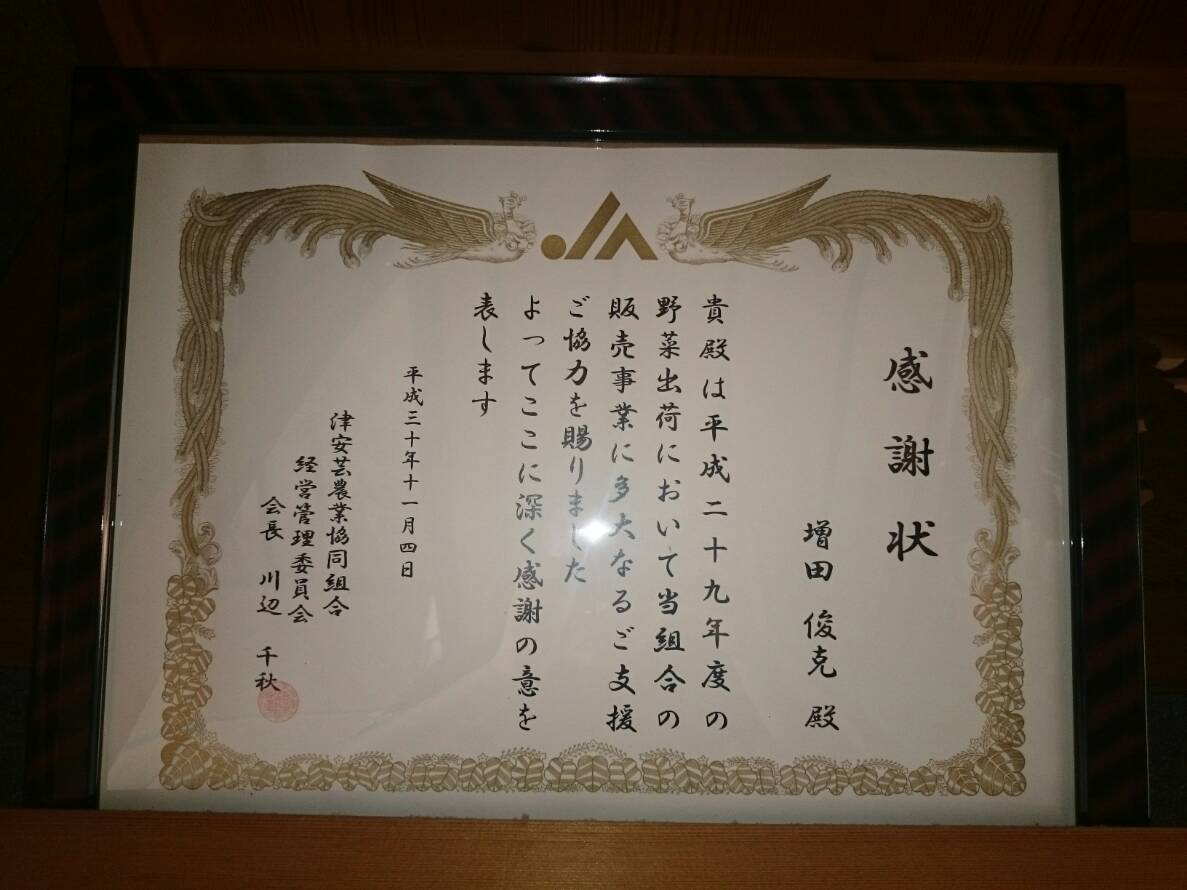 感謝状
増田 俊克 殿
貴殿は平成二十九年度の
野菜出荷において当組合の
販売事業に多大なるご支援
ご協力を賜りました
よってここに深く感謝の意を
表します
平成三十年十一月四日
津安芸農業協同組合
経営管理委員会
会長 川辺 千秋